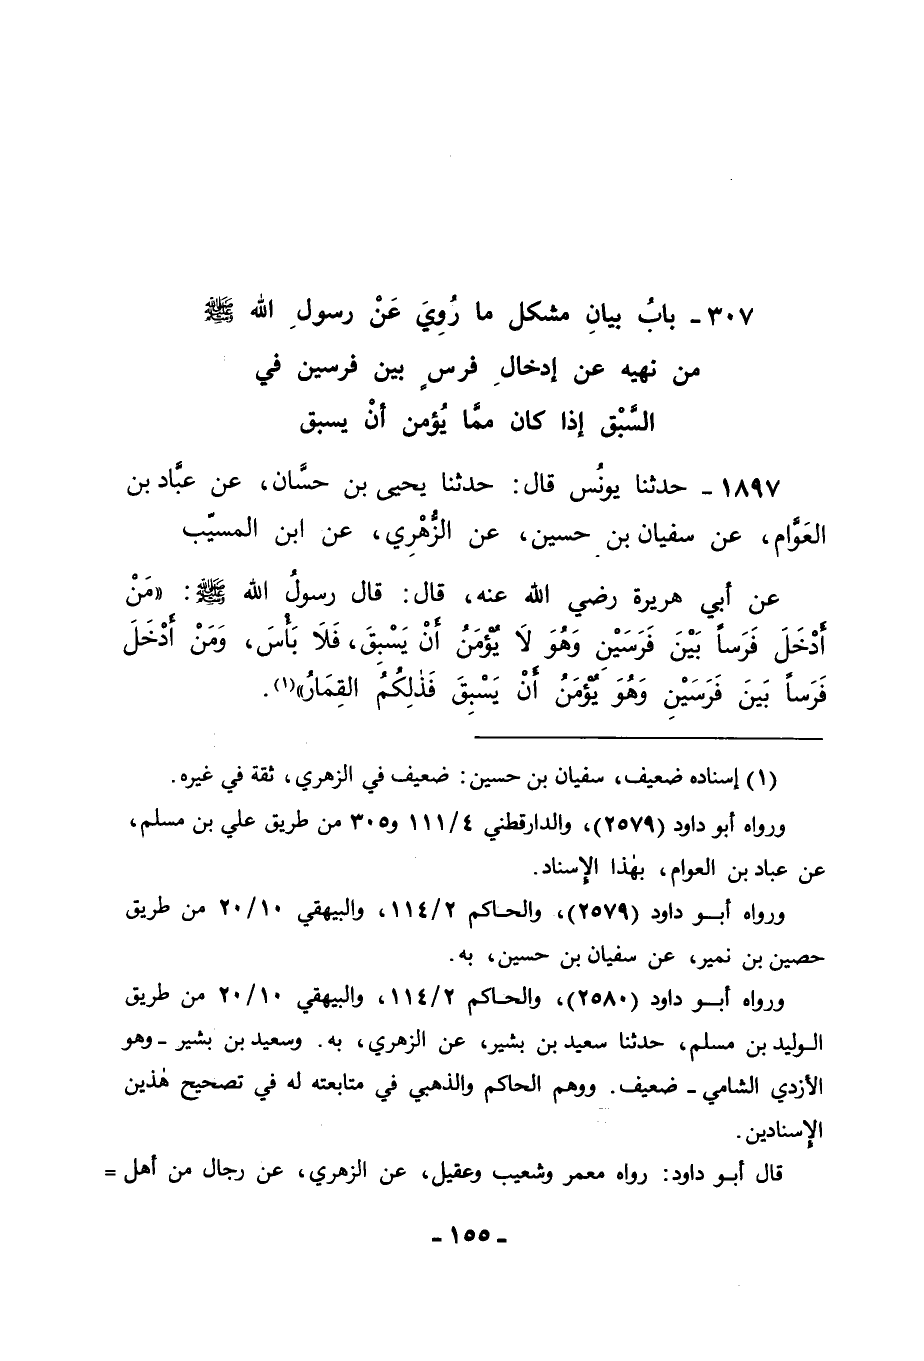 ٣٠٧ـ بابُ بيانِ مشكل ما رُوِيَ عَنْ رسولِ الله ﷺ
من نهيه عن إدخالِ فرسٍ بين فرسين في
السَّبْق إذا كان ممَّا يُؤمن أنْ يسبق
١٨٩٧ ـ حدثنا يونُس قال: حدثنا يحيى بن حسَّان، عن عبَّاد بن
العَوَّام، عن سفيان بن حسين، عن الزُّهْرِي، عن ابن المسيّب
عن أبي هريرة رضي الله عنه، قال: قال رسولُ الله ﷺ: «مَنْ
أَدْخَلَ فَرَساً بَيْنَ فَرَسَيْنِ وَهُوَ لَا يُؤْمَنُ أَنْ يَسْبِقَ، فَلَا بَأْسَ، وَمَنْ أَدْخَلَ
فَرَساً بَينَ فَرَسَيْنِ وَهُوَ يُؤْمَنُ أَنْ يَسْبِقَ فَذٰلِكُمُ القِمَارُ»(١).
(١) إسناده ضعيف، سفيان بن حسين: ضعيف في الزهري، ثقة في غيره.
ورواه أبو داود (٢٥٧٩)، والدارقطني ١١١/٤ و٣٠٥ من طريق علي بن مسلم،
عن عباد بن العوام، بهٰذا الإسناد.
ورواه أبـو داود (٢٥٧٩)، والحـاكم ١١٤/٢، والبيهقي ٢٠/١٠ من طريق
حصين بن نمير، عن سفيان بن حسين، به.
ورواه أبـو داود (٢٥٨٠)، والحـاكم ١١٤/٢، والبيهقي ٢٠/١٠ من طريق
الـوليد بن مسلم، حدثنا سعيد بن بشير، عن الزهري، به. وسعيد بن بشير ـ وهو
الأزدي الشامي ـ ضعيف. ووهم الحاكم والذهبي في متابعته له في تصحيح هٰذين
الإسنادين.
قال أبـو داود: رواه معمر وشعيب وعقيل، عن الزهري، عن رجال من أهل =
ـ ١٥٥ ـ